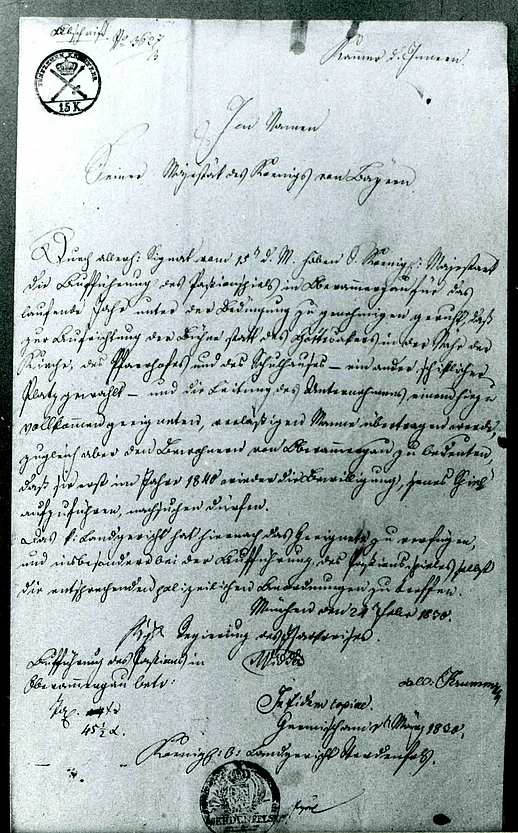 Abschrift. No 3627
Kamer d. Innern.
15 K
Im Namen
Seiner Majestät des Koenigs von Bayern.
Durch allerh: Signat vom 15t d. M. haben S. Koenigl: Majestaet
die Aufführung des Passionsspiels in Oberammergau für das
laufende Jahr unter der Bedingung zu genehmigen geruht, daß
zur Aufrichtung der Bühne statt des Gottesakers in der Nähe der
Kirche, des Pfarrhofes und des Schulhauses – ein anderer schiklicher
Platz gewählt – und die Leitung des Unternehmens einem hiezu
vollkommen geeigneten, verläßigen Manne übertragen werde,
zugleich aber den Bewohnern von Oberammergau zu bedeuten,
daß sie erst im Jahre 1840 wieder die Bewilligung, jenes Spiel
aufzuführen, nachsuchen dürfen.
Das k. Landgericht hat hiernach das Geeignete zu verfügen,
und insbesondere bei der Aufführung des Passions-Spieles selbst
die entsprechenden polizeilichen Anordnungen zu treffen.
München den 24 Febr 1830.
Kgl. Regierung des Isarkreises.
Aufführung des Passions in
Oberammergau betr:
45½ x.
In fidem copiae.
Garmisch am März 1830.
Koenigl: b: Landgericht Werdenfels.
WERDENFELS